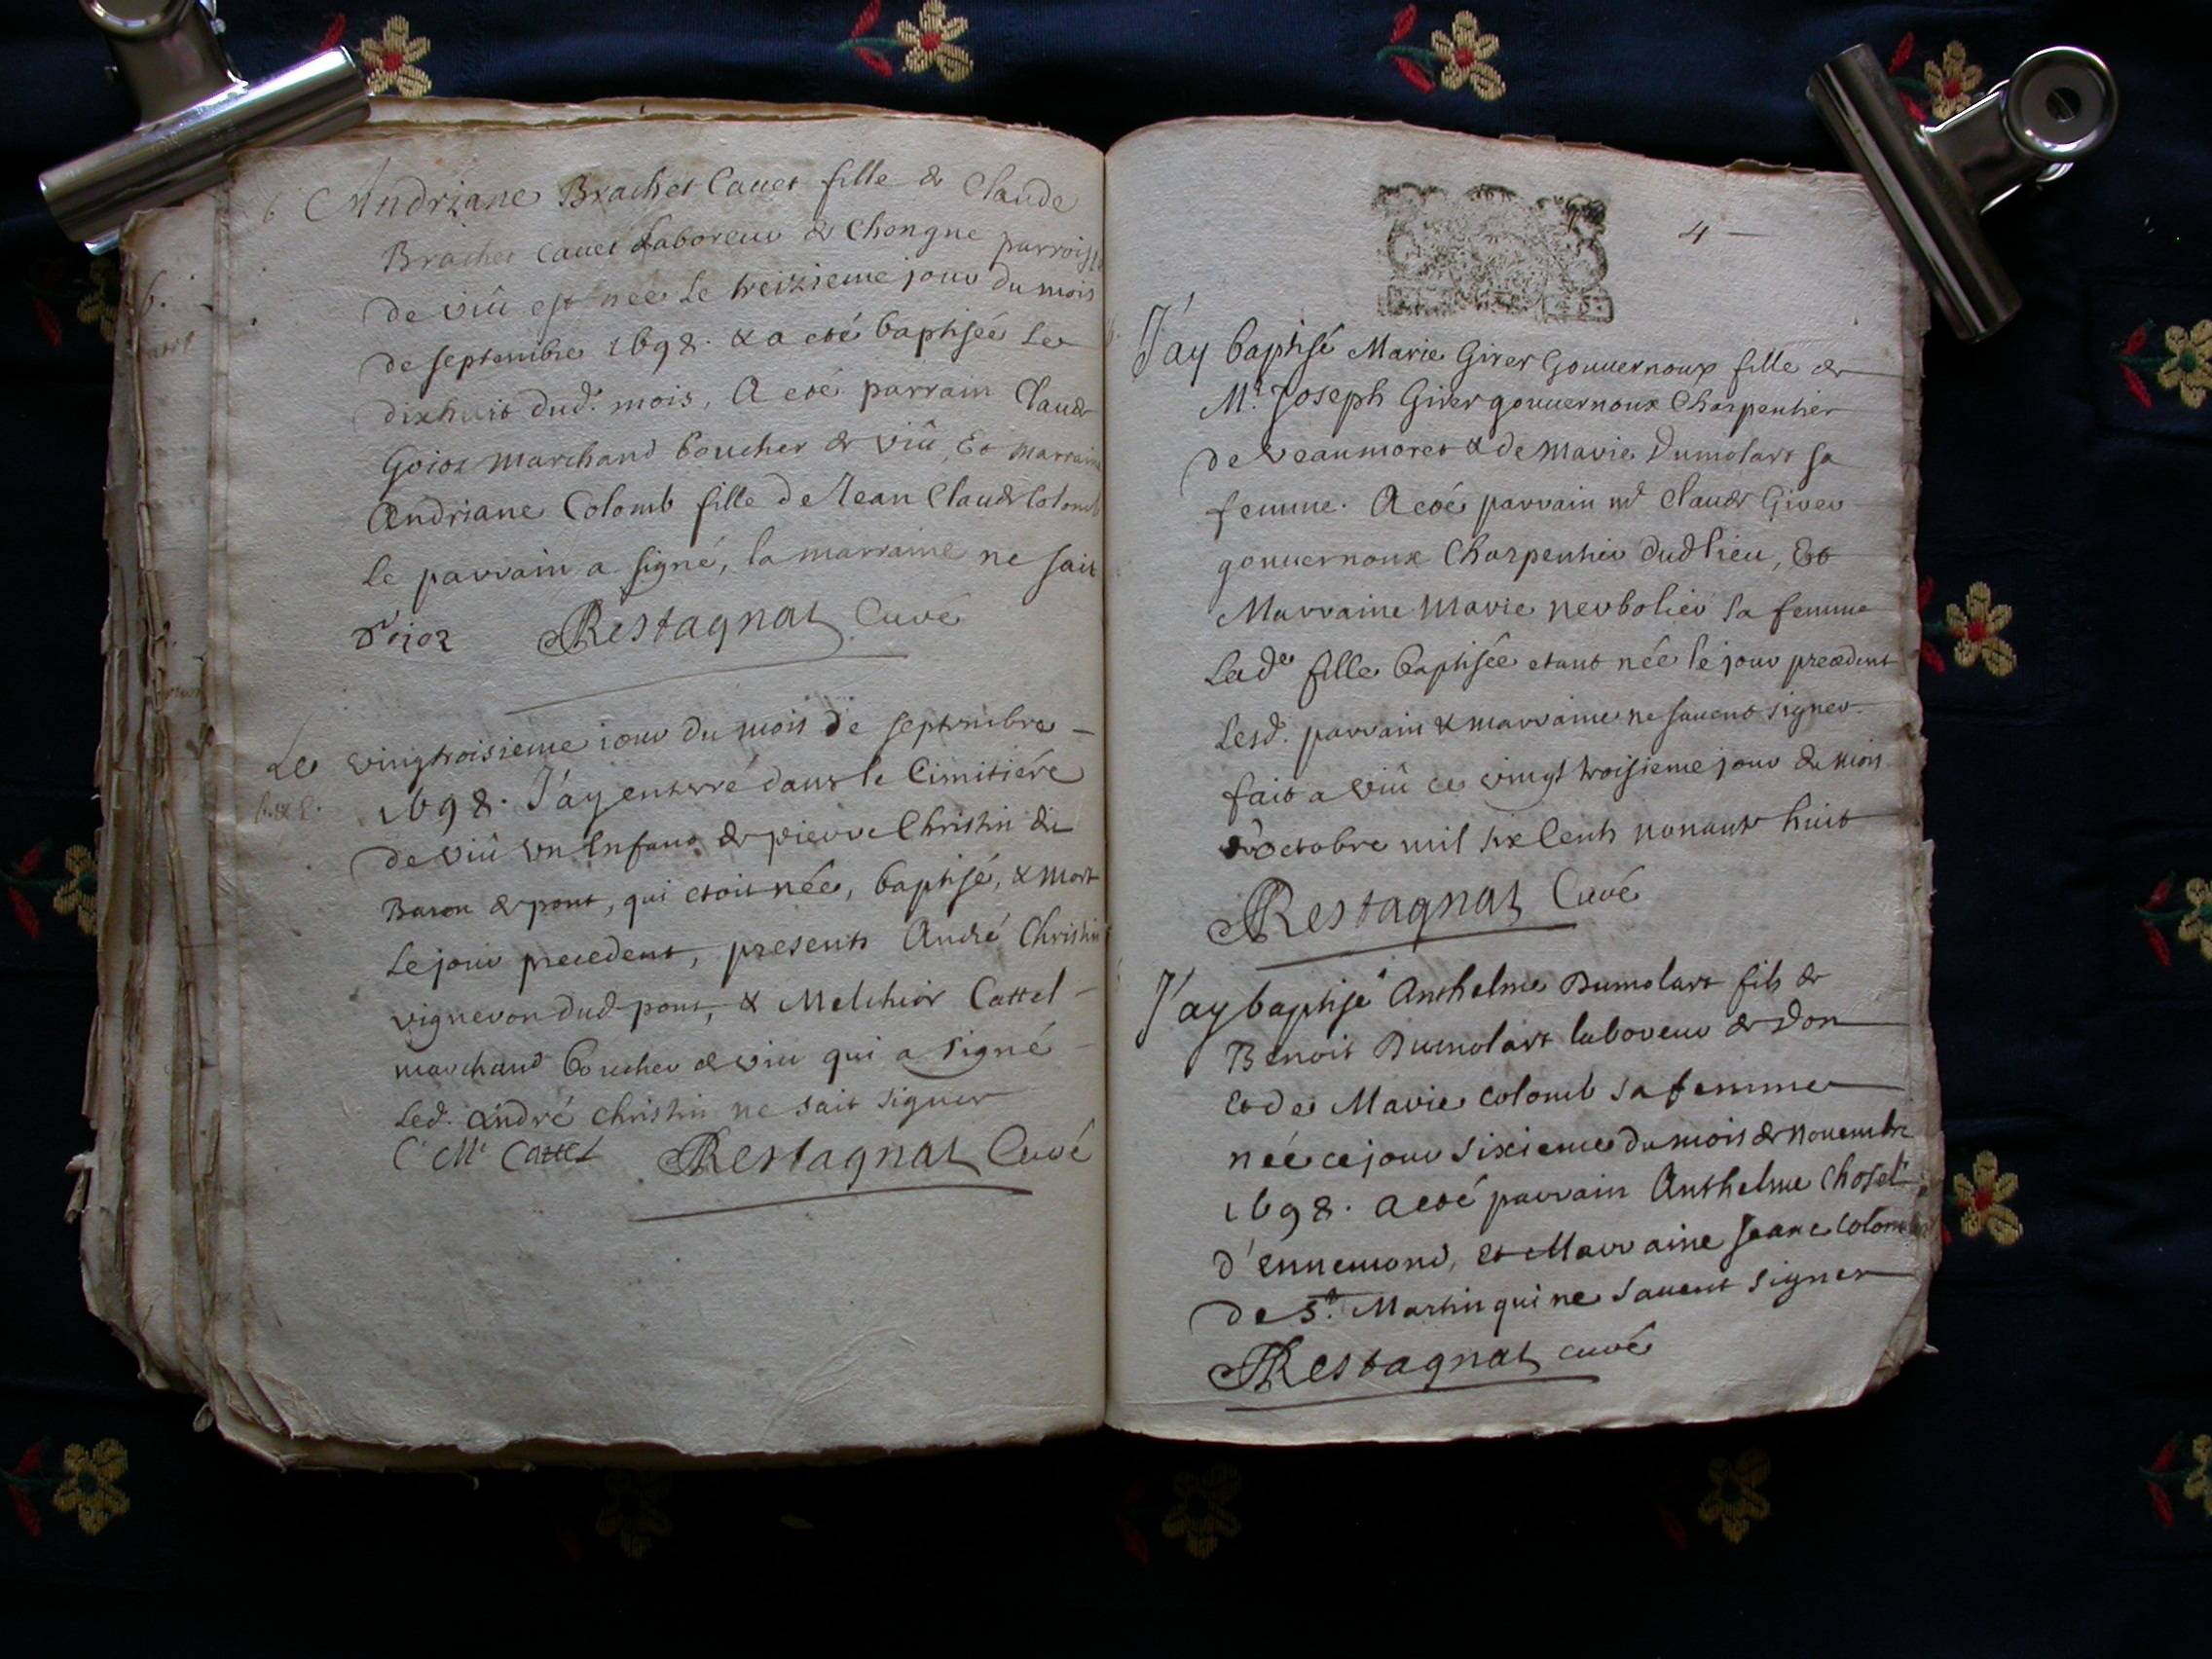 b Andriane Brachet Cauet fille de Claude
Brachet Cauet Laboreur de Chongne parroisse
de viû est née Le treizieme jour du mois
de septembre 1698. & a eté baptisée Le
dixhuit dud. mois, A eté parrain Claude
Goioz Marchand boucher de viû, Et marraine
Andriane Colomb fille de Jean Claude Colomb
Le parrain a signé, la marraine ne sait
Goioz Restagnat Curé
Le vingtroisieme iour du mois de septembre
b. & e. 1698. J'ay enterré dans le Cimitiére
de viû un Enfant de pierre Christin dit
Baron de pont, qui etoit née, baptisé, & mort
Le jour precedent, presents André Christin
vigneron dud pont, & Melchior Cattel
marchand boucher de viu qui a signé
Led. André Christin ne sait signer
Cattel Restagnat Curé
4
J'ay baptisé Marie Girer Gouuernoux fille de
Mr. Joseph Girer gouuernoux Charpentier
de veaumoret & de Marie Dumolart sa
femme. A eté parrain Claude Girer
gouuernoux Charpentier dud lieu, Et
Marraine Marie nerbolier sa femme
Lade fille baptisée etant née le jour precedent
Lesd. parrain & marraine ne sauent signer
fait a viû ce vingt troisieme jour du mois
d'octobre mil six Cents nonante huit
Restagnat Curé
J'ay baptisé Anthelme Dumolart fils de
Benoit Dumolart laboreur de Don
et de Marie Colomb sa femme
née ce jour sixieme du mois de nouembre
1698. a eté parrain Anthelme Chosel
d'Ennemond, et Marraine Jeane Colomb
de St. Martin qui ne sauent signer
Restagnat curé